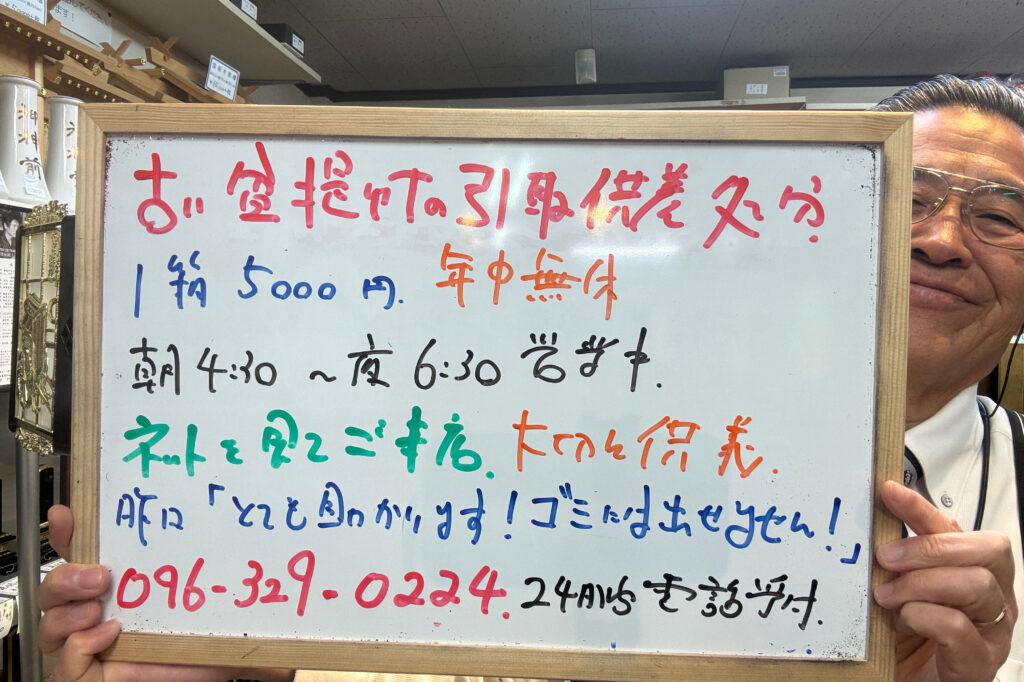 古い盆提灯の引取供養処分
1箱 5000円. 年中無休
朝4:30~夜6:30営業中.
ネットを見てご来店. 大切な供養.
「とても助かります!ゴミには出せません!」
096-329-0224. 24時間電話受付.
御神前